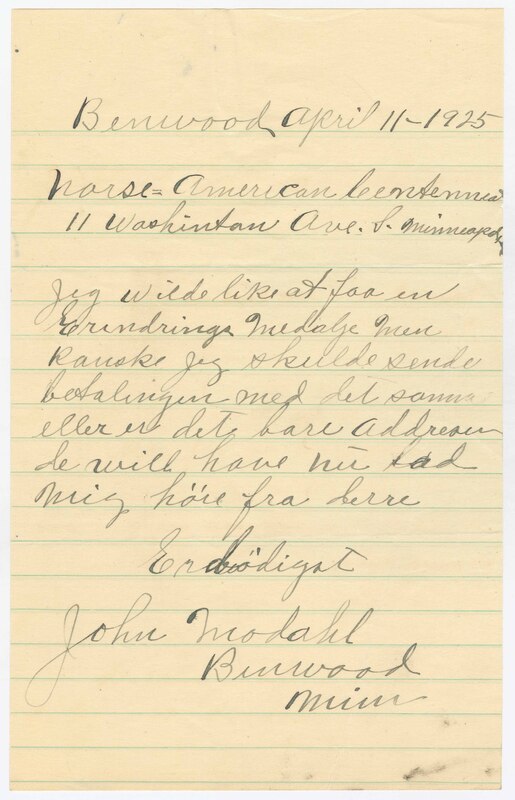 Benwood April 11-1925
Norse=American Centennial
11 Washintan Ave. S. Minneapolis
Jeg vilde like at faa en
Erindrings Medalje Men
kanske jeg skulde sende
betalingen med det samme
eller er det bare Addressen
de will have nu lad
mig höre fra derre
Erbödigst
John Modahl
Benwood
Minn